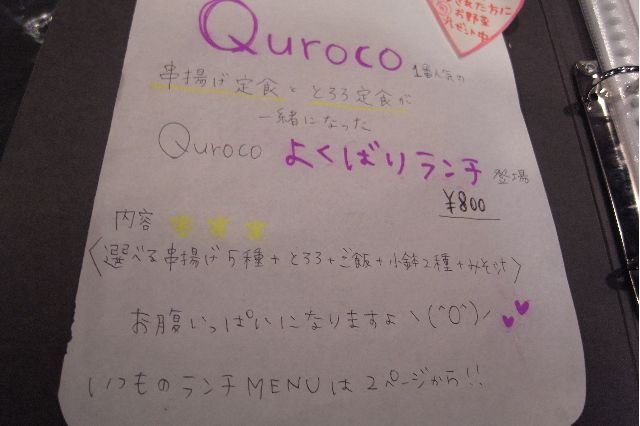 された方に
お野菜
プレゼント中
Quroco 1番人気の
串揚げ定食ととろろ定食が
一緒になった
Quroco よくばりランチ 登場
¥800
内容
〈選べる串揚げ5種+とろろ+ご飯+小鉢2種+みそ汁〉
お腹いっぱいになりますよヽ(^O^)ノ
いつものランチMENUは2ページから!!